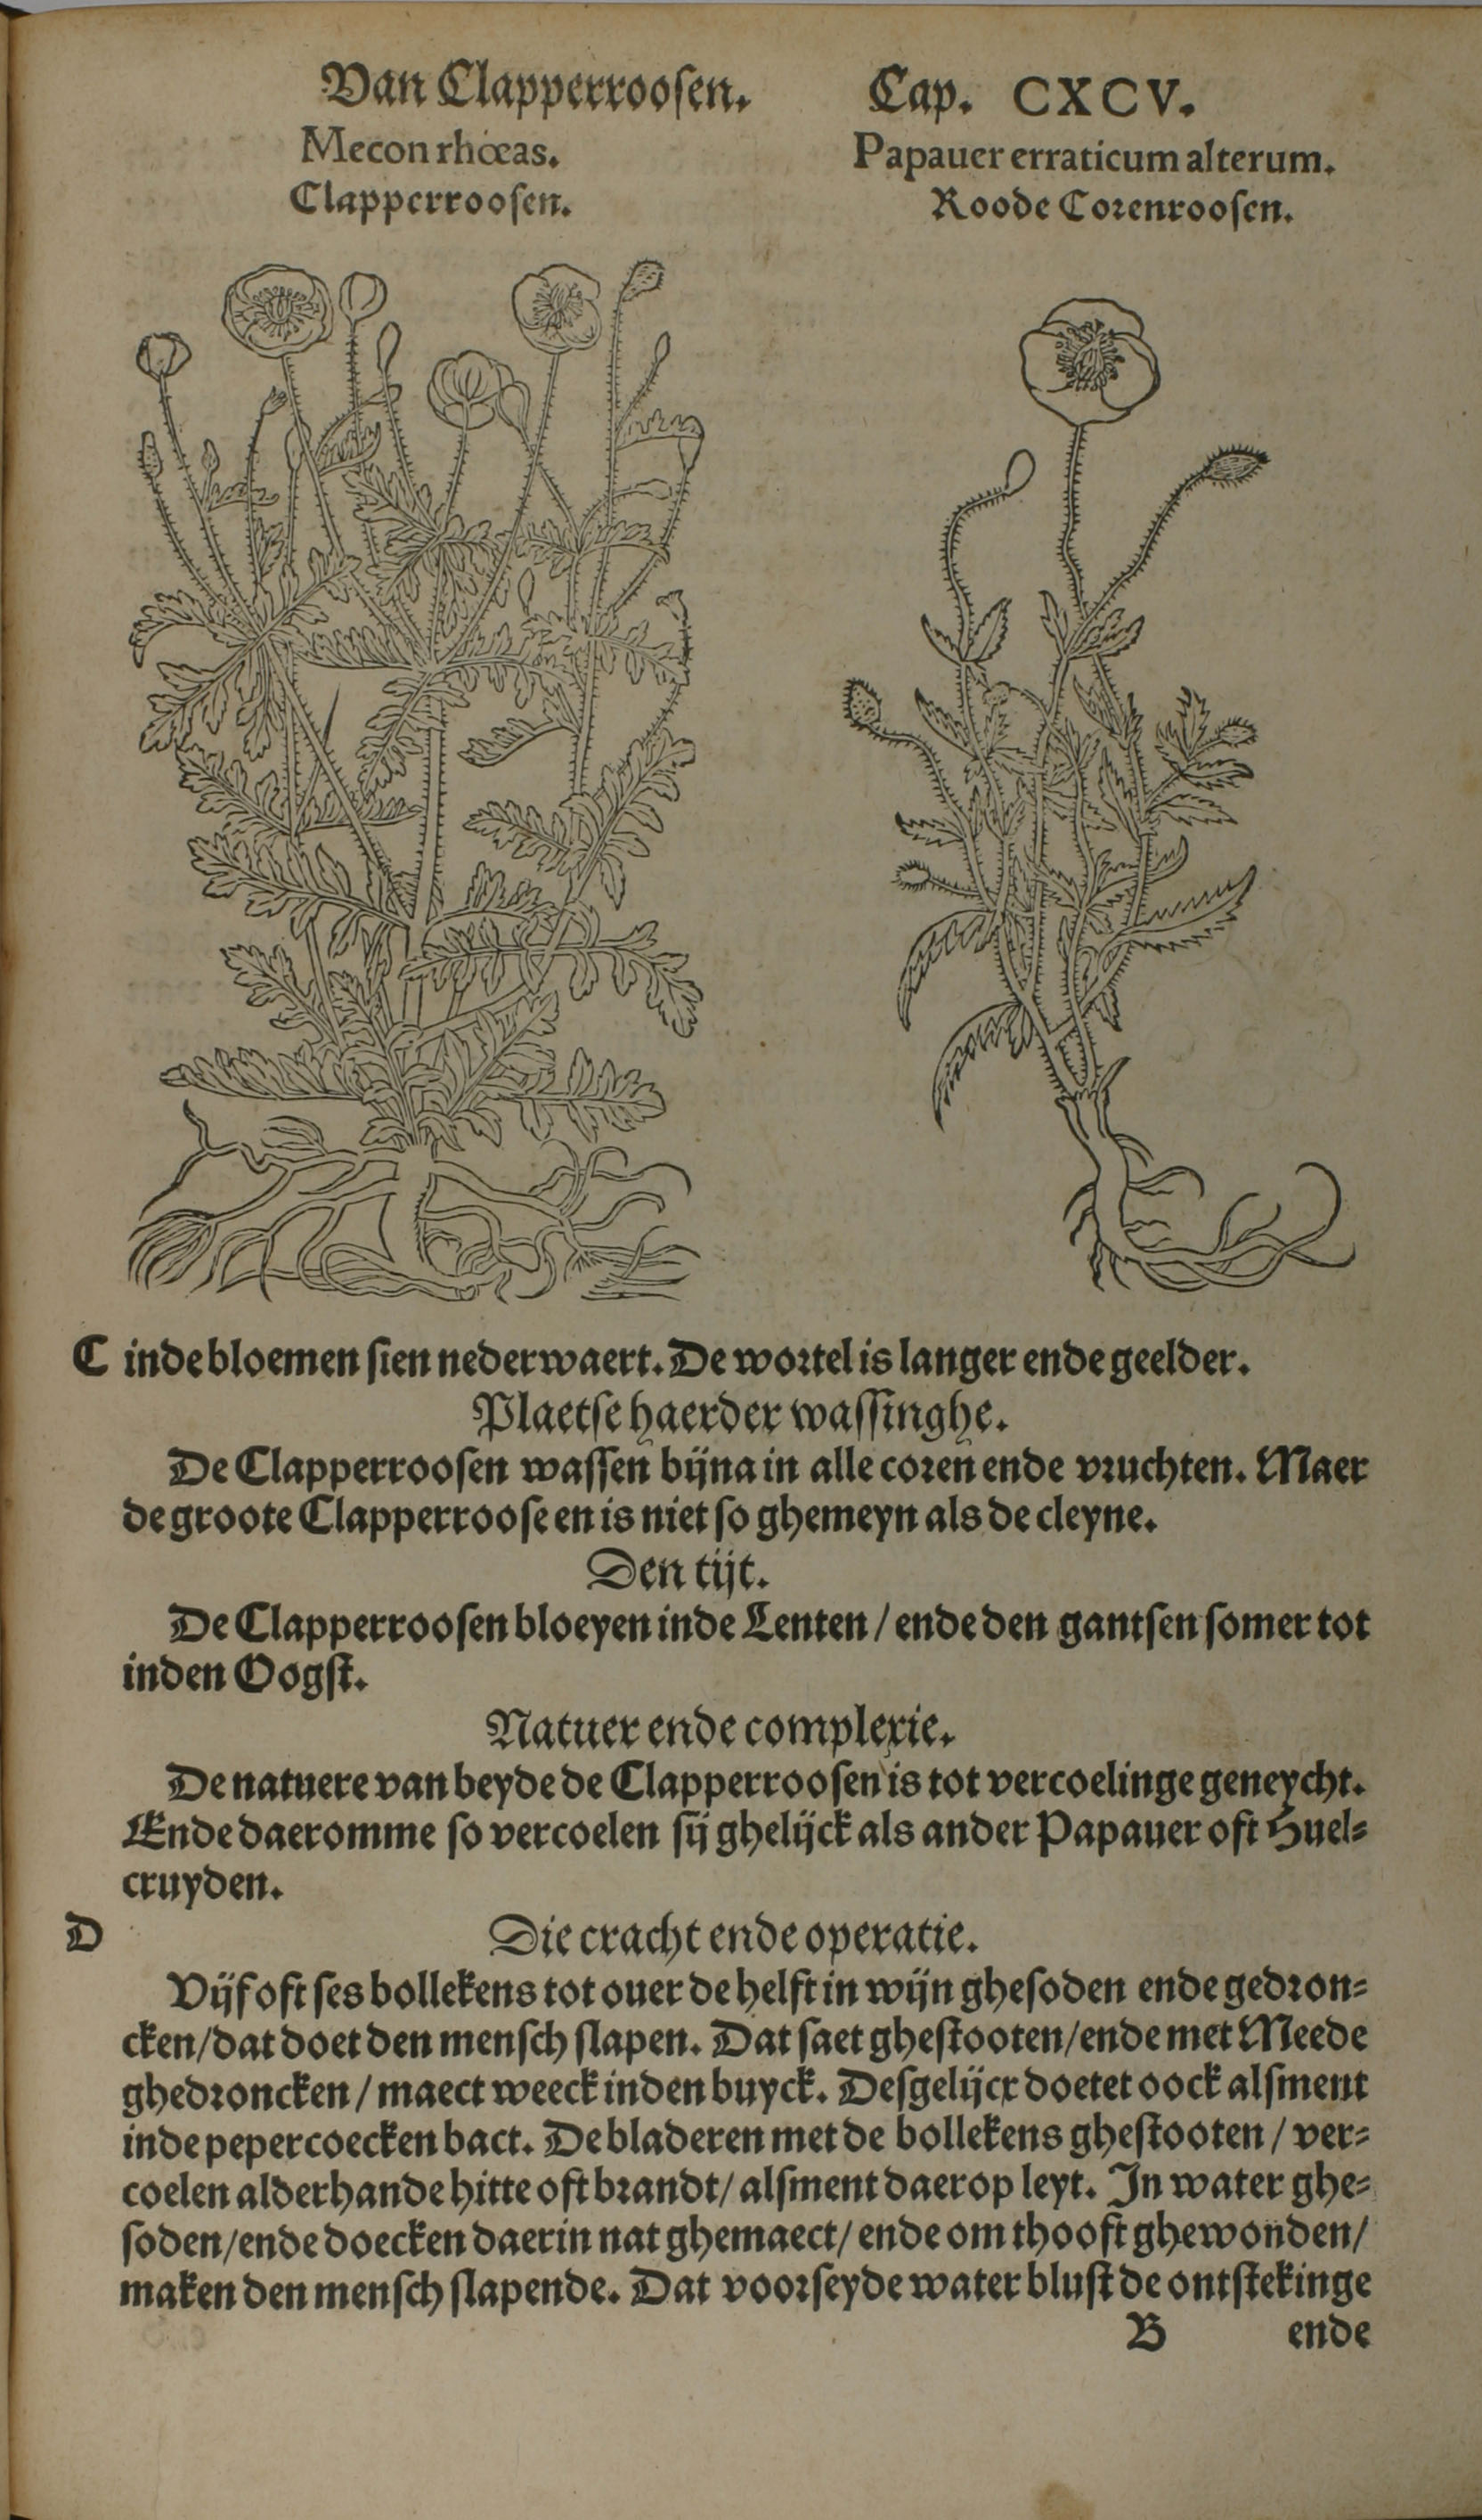 Van Clapperroosen. Cap. CXCV.
Mecon rhœas. Papauer erraticum alterum.
Clapperroosen. Roode Corenroosen.
C inde bloemen sien nederwaert. De wortel is langer ende geelder.
Plaetse haerder wassinghe.
De Clapperroosen wassen bijna in alle coren ende vruchten. Maer
de groote Clapperroose en is niet so ghemeyn als de cleyne.
Den tijt.
De Clapperroosen bloeyen inde Lenten / ende den gantsen somer tot
inden Oogst.
Natuer ende complexie.
De natuere van beyde de Clapperroosen is tot vercoelinge geneycht.
Ende daeromme so vercoelen sij ghelijck als ander Papauer oft Huel-
cruyden.
D Die cracht ende operatie.
Vijf oft ses bollekens tot ouer de helft in wijn ghesoden ende gedron-
cken/dat doet den mensch slapen. Dat saet ghestooten/ende met Meede
ghedroncken / maect weeck inden buyck. Desgelijcx doetet oock alsment
inde pepercoecken bact. De bladeren met de bollekens ghestooten / ver-
coelen alderhande hitte oft brandt/ alsment daer op leyt. In water ghe-
soden/ende doecken daer in nat ghemaect/ ende om thooft ghewonden/
maken den mensch slapende. Dat voorseyde water blust de ontstekinge
B ende